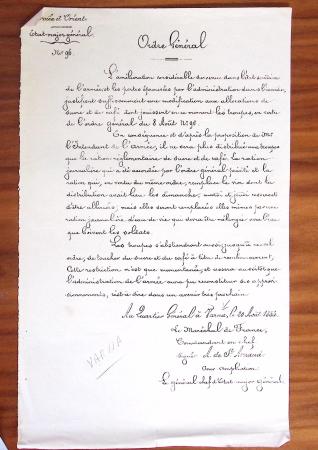 Armée d'Orient
État-major général.
No. 96.
Ordre Général
L'amélioration considérable survenue dans l'état sanitaire
de l'armée et les pertes éprouvées par l'administration dans l'incendie,
justifient suffisamment une modification aux allocations de
sucre et de café dont jouissent en ce moment les troupes, en vertu
de l'ordre général du 8 Août No. 90.
En conséquence et d'après la proposition de Mr
l'Intendant de l'armée, il ne sera plus distribué aux troupes
que la ration réglementaire de sucre et de café. La ration
journalière qui a été accordée par l'ordre général précité et la
ration qui, en vertu du même ordre, remplace le vin dont la
distribution avait lieu les dimanche, mardi et jeudi cessent
d'être allouées, mais elles seront remplacées elles-mêmes par une
ration journalière d'eau de vie qui devra être mélangée à l'eau
que boivent les soldats.
Les troupes s'abstiendront aussi jusqu'à nouvel
ordre, de toucher du sucre et du café à titre de remboursement.
Cette restriction n'est que momentanée et cessera aussitôt que
l'administration de l'armée aura pu reconstituer ses approvi-
sionnements, c'est-à-dire dans un avenir très prochain.
Au Quartier Général à Varna, le 20 Août 1854.
Le Maréchal de France,
Commandant en chef
signé A. de St. Arnaud
Pour ampliation
Le général chef d'État-major général
VARNA